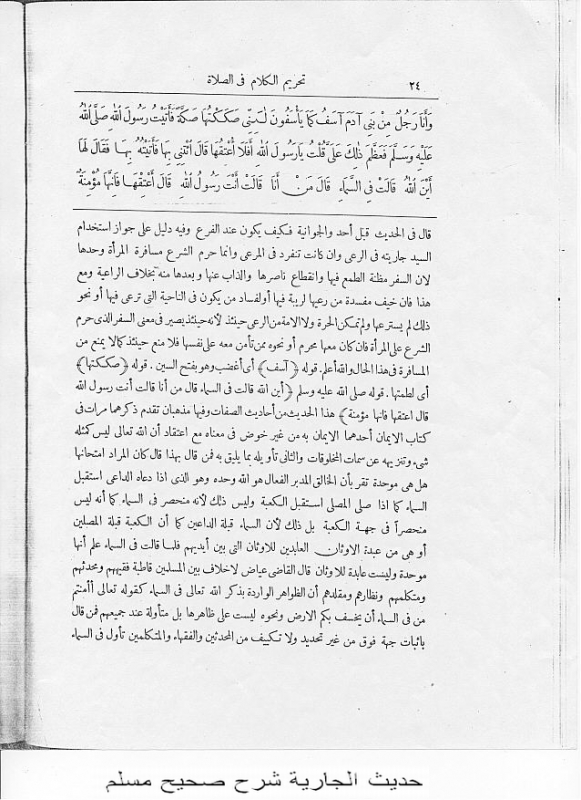 ٢٤ تحريم الكلام فى الصلاة
وَأَنَا رَجُلٌ مِنْ بَنِي آدَمَ آسَفُ كَمَا يَأْسَفُونَ لٰكِنِّي صَكَكْتُهَا صَكَّةً فَأَتَيْتُ رَسُولَ اللهِ صَلَّى اللهُ
عَلَيْهِ وَسَلَّمَ فَعَظَّمَ ذٰلِكَ عَلَىَّ قُلْتُ يَارَسُولَ اللهِ أَفَلَا أُعْتِقُهَا قَالَ ائْتِنِي بِهَا فَأَتَيْتُهُ بِهَا فَقَالَ لَهَا
أَيْنَ اللهُ قَالَتْ فِي السَّمَاءِ قَالَ مَنْ أَنَا قَالَتْ أَنْتَ رَسُولُ اللهِ قَالَ أَعْتِقْهَا فَإِنَّهَا مُؤْمِنَةٌ
قال فى الحديث قبل أحد والجوانية فكيف يكون عند الفرع وفيه دليل على جواز استخدام
السيد جاريته فى الرعى وان كانت تنفرد فى المرعى وانما حرم الشرع مسافرة المرأة وحدها
لان السفر مظنة الطمع فيها وانقطاع ناصرها والذاب عنها وبعدها منه بخلاف الراعية ومع
هذا فان خيف مفسدة من رعيها لريبة فيها أو لفساد من يكون فى الناحية التى ترعى فيها أو نحو
ذلك لم يسترعها ولم تمكن الحرة ولا الامة من الرعى حينئذ لأنه حينئذ يصير فى معنى السفر الذى حرم
الشرع على المرأة فان كان معها محرم أو نحوه ممن تأمن معه على نفسها فلا منع حينئذ كما لا يمنع من
المسافرة فى هذا الحال والله أعلم. قوله ﴿آسف﴾ أى أغضب وهو بفتح السين. قوله ﴿صككتها﴾
أى لطمتها. قوله صلى الله عليه وسلم ﴿أين الله قالت فى السماء قال من أنا قالت أنت رسول الله
قال اعتقها فانها مؤمنة﴾ هذا الحديث من أحاديث الصفات وفيها مذهبان تقدم ذكرهما مرات فى
كتاب الايمان أحدهما الايمان به من غير خوض فى معناه مع اعتقاد أن الله تعالى ليس كمثله
شىء وتنزيهه عن سمات المخلوقات والثانى تأويله بما يليق به فمن قال بهذا قال كان المراد امتحانها
هل هى موحدة تقر بأن الخالق المدبر الفعال هو الله وحده وهو الذى اذا دعاه الداعى استقبل
السماء كما اذا صلى المصلى استقبل الكعبة وليس ذلك لأنه منحصر فى السماء كما أنه ليس
منحصراً فى جهة الكعبة بل ذلك لأن السماء قبلة الداعين كما أن الكعبة قبلة المصلين
أو هى من عبدة الاوثان العابدين للاوثان التى بين أيديهم فلما قالت فى السماء علم أنها
موحدة وليست عابدة للاوثان قال القاضى عياض لاخلاف بين المسلمين قاطبة فقيههم ومحدثهم
ومتكلمهم ونظارهم ومقلدهم أن الظواهر الواردة بذكر الله تعالى فى السماء كقوله تعالى أأمنتم
من فى السماء أن يخسف بكم الارض ونحوه ليست على ظاهرها بل متأولة عند جميعهم فمن قال
باثبات جهة فوق من غير تحديد ولا تكييف من المحدثين والفقهاء والمتكلمين تأول فى السماء
حديث الجارية شرح صحيح مسلم